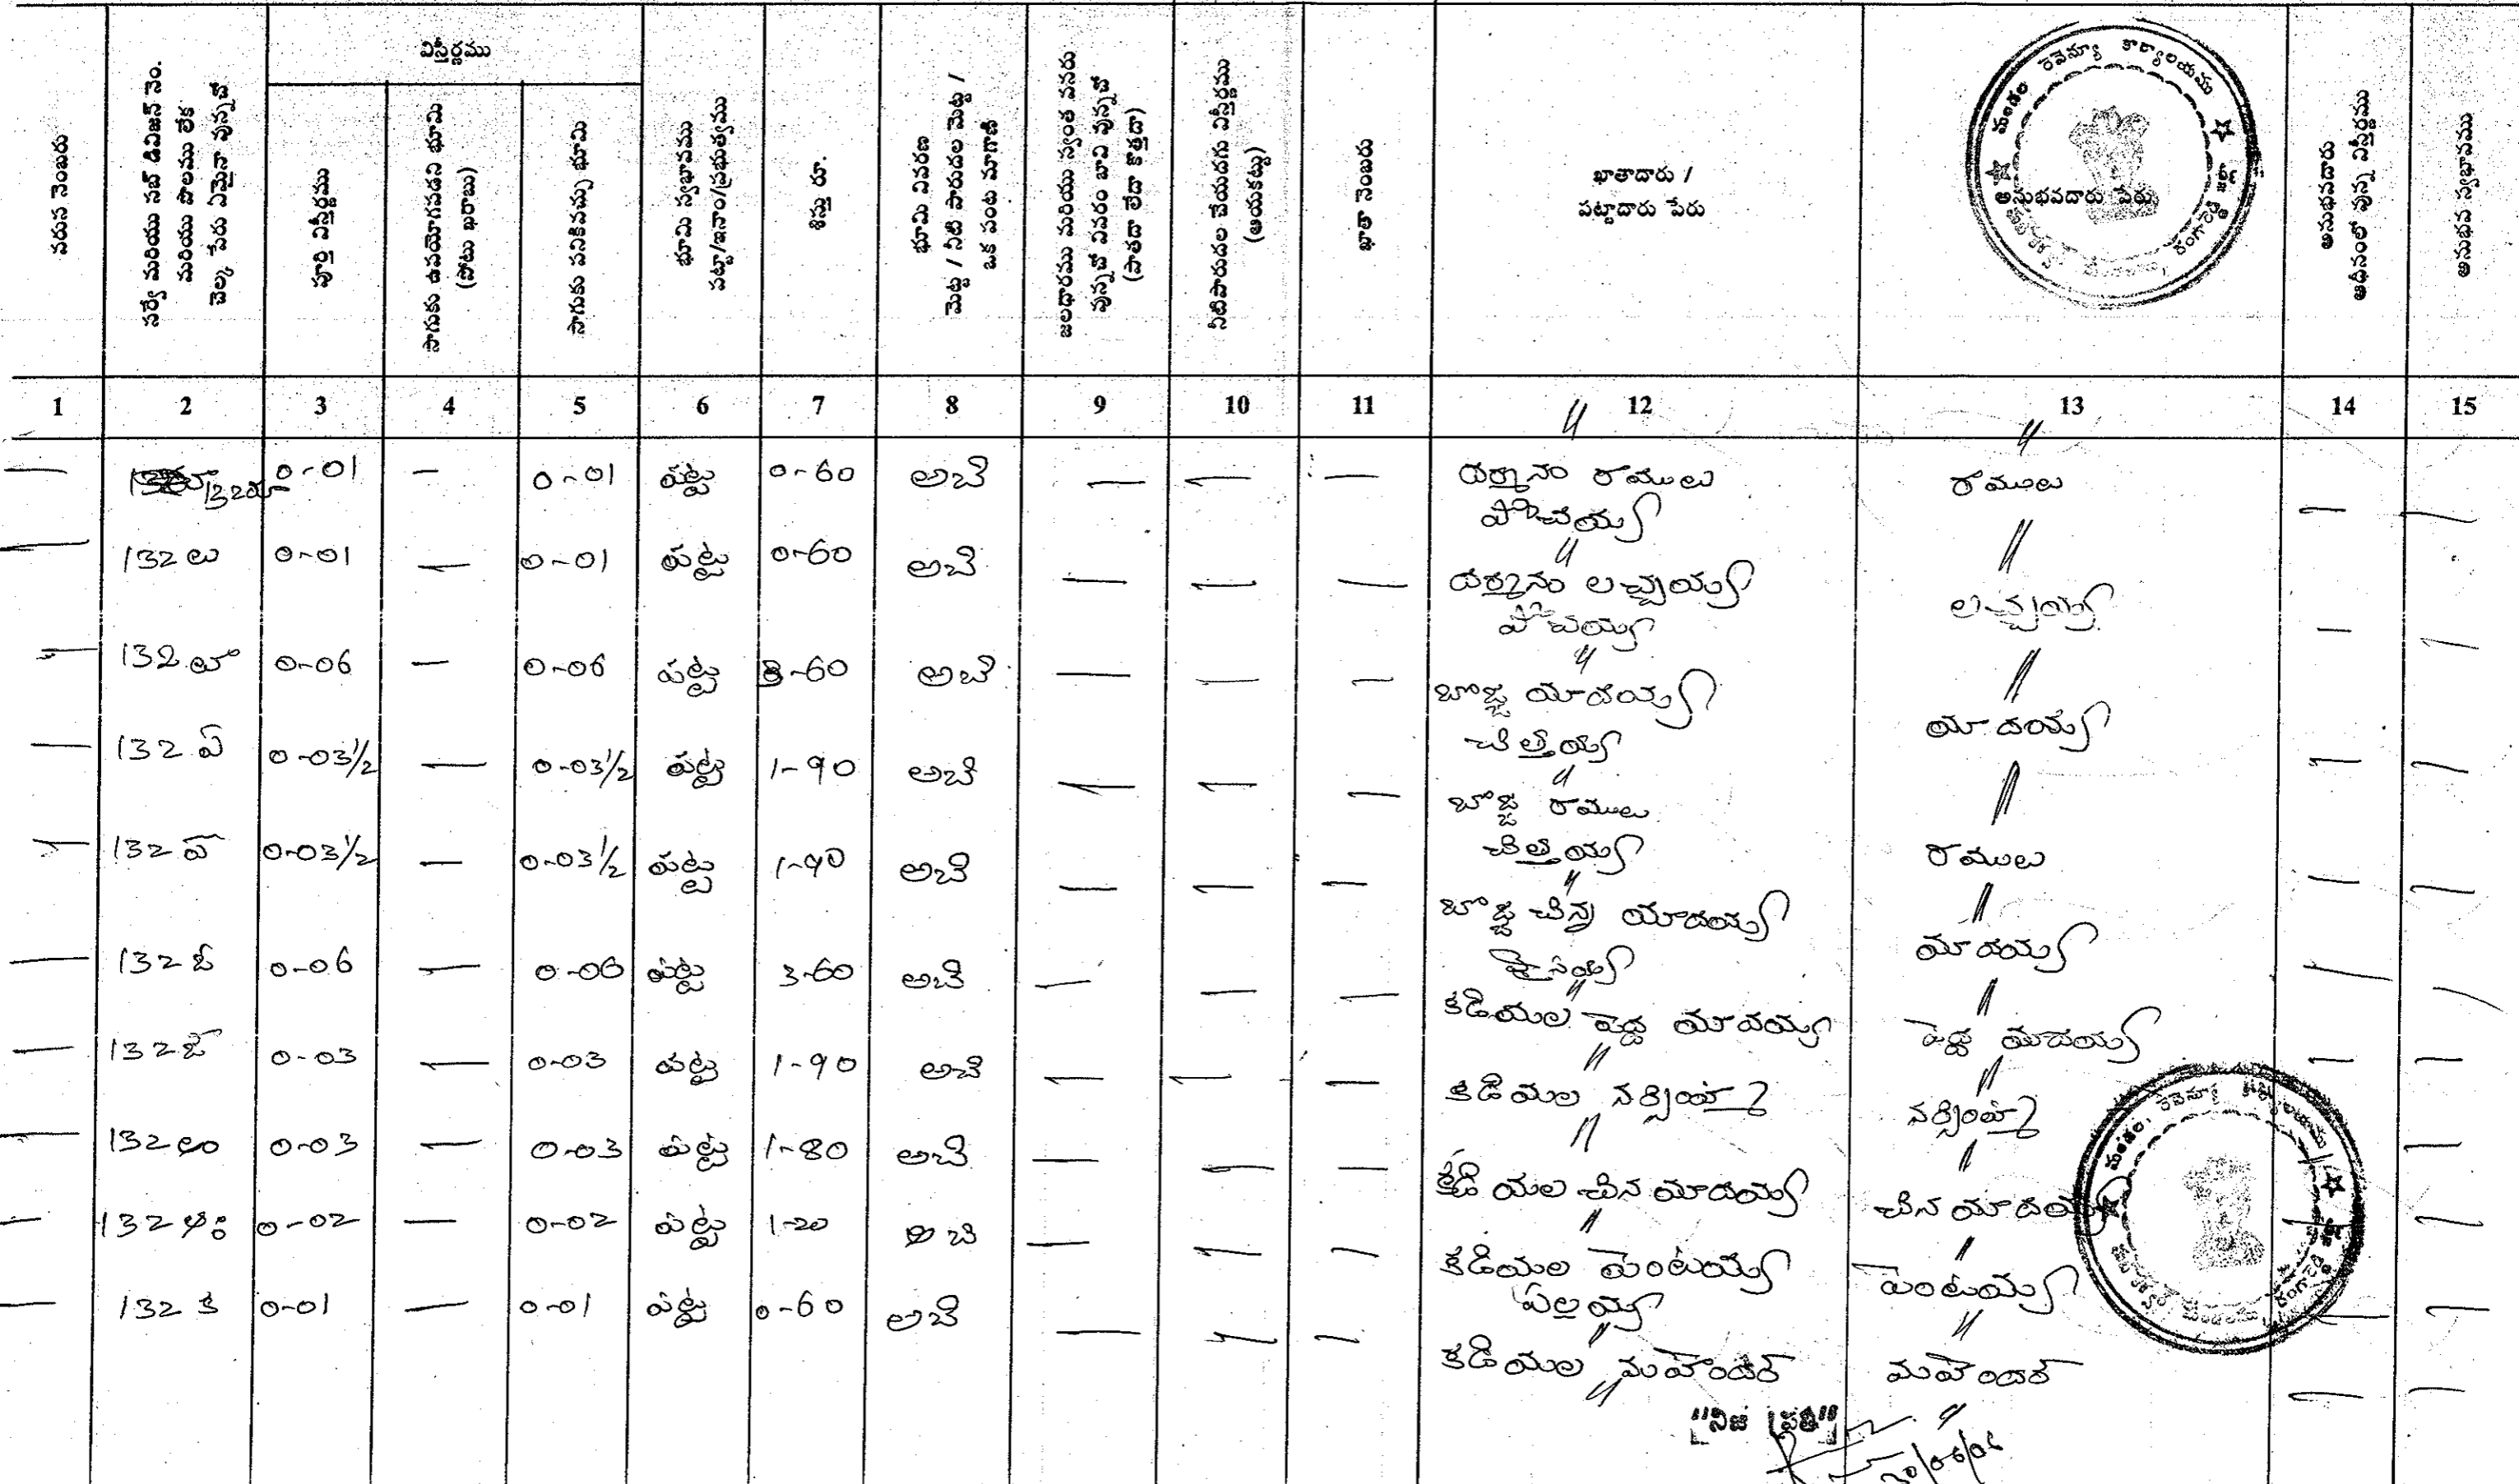 వరుస నెంబరు
సర్వే మరియు సబ్ డివిజన్ నెం.
మరియు పొలము లేక
చెల్క పేరు ఏమైనా వున్నచో
విస్తీర్ణము
పూర్తి విస్తీర్ణము
సాగుకు ఉపయోగపడని భూమి
(పోటు ఖరాబు)
సాగుకు పనికివచ్చు భూమి
భూమి స్వభావము
పట్టా/ఇనాం/ప్రభుత్వము
శిస్తు రూ.
భూమి వివరణ
మెట్ట / నీటి పారుదల మెట్ట /
ఒక పంట మాగాణి
జలధారము మరియు స్వంత వనరు
వున్నచో వివరం బావి వున్నచో
(పాతదా లేదా కొత్తదా)
నీటిపారుదల చేయదగు విస్తీర్ణము
(ఆయకట్టు)
ఖాతా నెంబరు
ఖాతాదారు /
పట్టాదారు పేరు
మండల రెవెన్యూ కార్యాలయము
అనుభవదారు పేరు
అనుభవదారు
ఆధీనంలో వున్న విస్తీర్ణము
అనుభవ స్వభావము
1 2 3 4 5 6 7 8 9 10 11 12 13 14 15
— 0-01 — 0-01 పట్ట 0-60 అబి — — — రాములు రాములు — —
పోచయ్య //
— 132 లు 0-01 — 0-01 పట్ట 0-60 అబి — — — లచ్చయ్య లచ్చయ్య — —
పోచయ్య //
— 132 లూ 0-06 — 0-06 పట్ట 3-60 అబి — — — బొజ్జ యాదయ్య యాదయ్య — —
చిత్తయ్య //
— 132 ఏ 0-03½ — 0-03½ పట్ట 1-90 అబి — — — బొజ్జ రాములు రాములు — —
చిత్తయ్య //
— 132 0-03½ — 0-03½ పట్ట 1-90 అబి — — — బొజ్జ చిన్న యాదయ్య యాదయ్య — —
— 132 ఓ 0-06 — 0-06 పట్ట 3-60 అబి — — — కడియల పెద్ద యాదయ్య పెద్ద యాదయ్య — —
— 132 ఔ 0-03 — 0-03 పట్ట 1-90 అబి — — — కడియల నర్సింహ నర్సింహ — —
— 132 అం 0-03 — 0-03 పట్ట 1-80 అబి — — — కడియల చిన యాదయ్య చిన యాదయ్య — —
— 132 అః 0-02 — 0-02 పట్ట 1-20 అబి — — — కడియల పెంటయ్య పెంటయ్య — —
ఏల్లయ్య //
— 132 క 0-01 — 0-01 పట్ట 0-60 అబి — — — కడియల మహేందర్ మహేందర్ — —
"నిజ ప్రతి"
మండల రెవెన్యూ కార్యాలయము